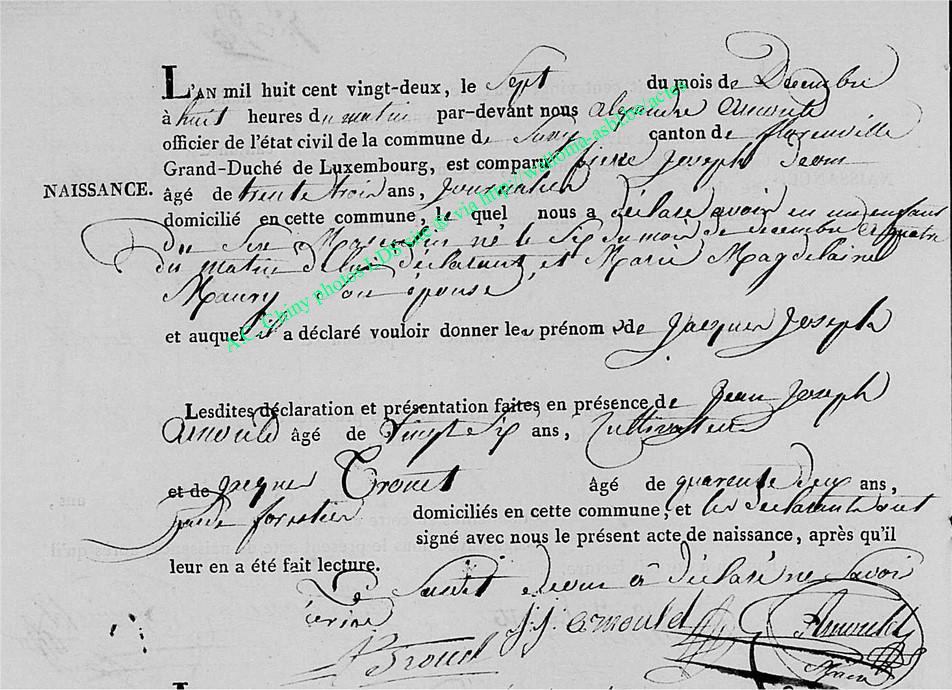 L'AN mil huit cent vingt-deux, le Sept du mois de Décembre
à huit heures du matin par-devant nous alexandre Arnould
officier de l'état civil de la commune de Suxy canton de florenville
Grand-Duché de Luxembourg, est comparu pierre Joseph
NAISSANCE. âgé de trente trois ans, Journalier
domicilié en cette commune, le quel nous a déclaré avoir eu un enfant
du Sexe Masculin né le Six du mois de decembre à quatre
du matin de lui déclarant et Marie Magdelaine
Maury Son épouse
et auquel il a déclaré vouloir donner les prénom s de Jacques Joseph
Lesdites déclaration et présentation faites en présence de Jean Joseph
Arnould âgé de Vingt Six ans, Cultivateur
et de Jacques Trouet âgé de quarente deux ans,
garde forestier domiciliés en cette commune, et les déclarants ont
signé avec nous le présent acte de naissance, après qu'il
leur en a été fait lecture.
Le Susdit à déclaré ne Savoir
écrire
J. J. Arnould
Arnould
Trouet
A.C. Chiny photos LDS site & via http://wallonia-asbl.be/actes